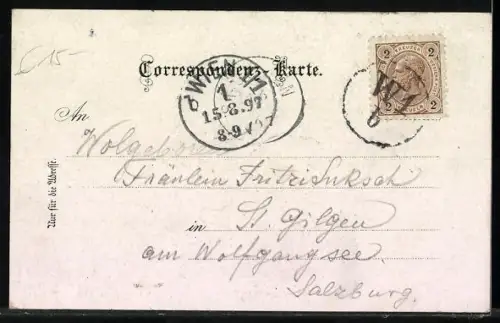 £ 15-
Correspondenz-Karte.
WIEN 1/1
1
15.8.97
8-9 V
WI
2 KREUZER 2
An
Wolgeboren
Fräulein Fritzi Suksch
in
St. Gilgen
am Wolfgangsee.
Salzburg.
Nur für die Adresse.